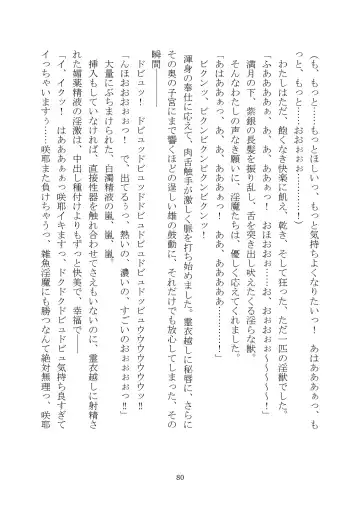 （も、もっと――もっとほしいっ、もっと気持ちよくなりたいっ！　あはあああぁっ、も
っと、もっとおぉぉ………！）
　わたしはただ、飽くなき快美に飢え、乾き、そして狂った、ただ一匹の淫獣でした。
「ふああああぁ、あ、あ、ああああぁっ！　おほおおぉぉ…お、おぉおぉぉ～～～～！」
　満月の下、紫銀の長髪を振り乱し、舌を突き出し吠えたくる淫らな獣。
　そんなわたしの声なき願いに、淫魔たちは、優しく応えてくれました。
「あはああぁっ、あ、あ、ああああぁっ！　あ、あああああ………！」
　ビクンッ、ビクンビクンビクンビクンッ！
　渾身の奉仕に応えて、肉舌触手が激しく脈を打ち始めました。霊衣越しに秘唇に、さらに
その奥の子宮にまで響くほどの逞しい雄の鼓動に、それだけでも放心してしまった、その
瞬間――
　ドビュッ！　ドビュッドビュッドビュドビュドッビュウウウウウウウッ‼
「んほおおぉぉぉっ！　で、出てるうっ、熱いの、濃いの、すごいのおぉぉぉぉっ‼
　大量にぶちまけられた、白濁精液の嵐、嵐、嵐。
　挿入もしていなければ、直接性器を触れ合わせてさえもいないのに、霊衣越しに射精さ
れた媚薬精液の淫激は、中出し種付けよりもずっと快美で、幸福で――
「イ、イクッ！　はあああぁぁっ咲耶イキますっ、ドクドクドビュドビュ気持ち良すぎて
イっちゃいますぅ……咲耶また負けちゃうっ、雑魚淫魔にも勝つなんて絶対無理っ、咲耶
80